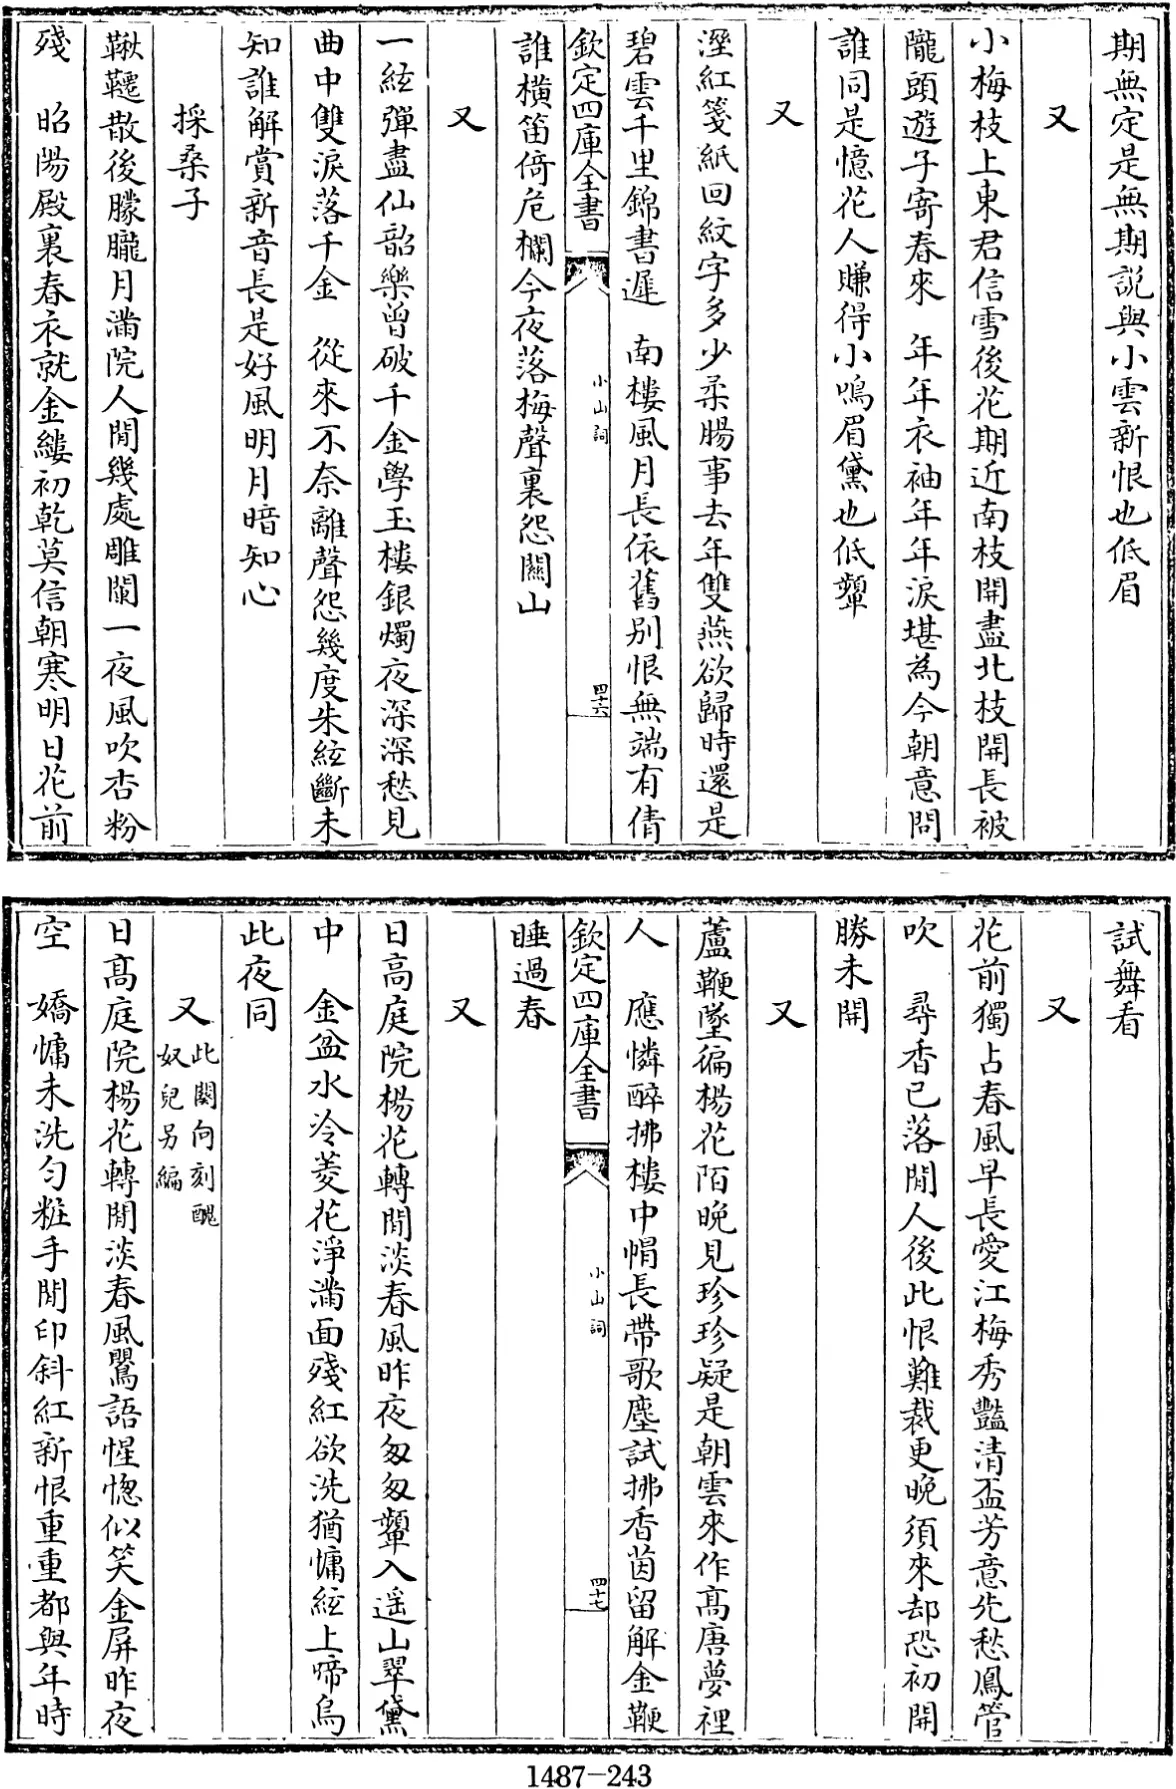 期無定是無期説與小雲新恨也低眉
又
小梅枝上東君信雪後花期近南枝開盡北枝開長被
隴頭遊子寄春來　年年衣袖年年淚堪為今朝意問
誰同是憶花人賺得小鳴眉黛也低顰
又
溼紅箋紙回紋字多少柔腸事去年雙燕欲歸時還是
碧雲千里錦書遲　南樓風月長依舊别恨無端有倩
欽定四庫全書
小山詞
四十六
誰橫笛倚危欄今夜落梅聲裏怨關山
又
一絃彈盡仙韶樂曾破千金學玉樓銀燭夜深深愁見
曲中雙淚落千金　從來不奈離聲怨幾度朱絃斷未
知誰解賞新音長是好風明月暗知心
採桑子
鞦韆散後朦朧月滿院人閒幾處雕闌一夜風吹杏粉
殘　昭陽殿裏春衣就金縷初乾莫信朝寒明日花前
試舞看
又
花前獨占春風早長愛江梅秀豔清盃芳意先愁鳳管
吹　尋香已落閒人後此恨難裁更晚須來却恐初開
勝未開
又
蘆鞭墜徧楊花陌晚見珍珍疑是朝雲來作高唐夢裡
人　應憐醉拂樓中帽長帶歌塵試拂香茵留解金鞭
欽定四庫全書
小山詞
四十七
睡過春
又
日高庭院楊花轉閒淡春風昨夜匆匆顰入遥山翠黛
中　金盆水冷菱花淨滿面殘紅欲洗猶慵絃上啼烏
此夜同
又 此闋向刻醜奴兒另編
日高庭院楊花轉閒淡春風鸎語惺憁似笑金屏昨夜
空　嬌慵未洗匀粧手閒印斜紅新恨重重都與年時
1487-243